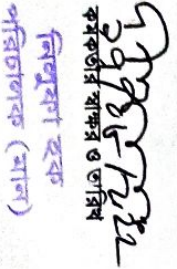 কর্মকর্তার স্বাক্ষর ও তারিখ
নিলুফা হক
পরিচালক (মান)